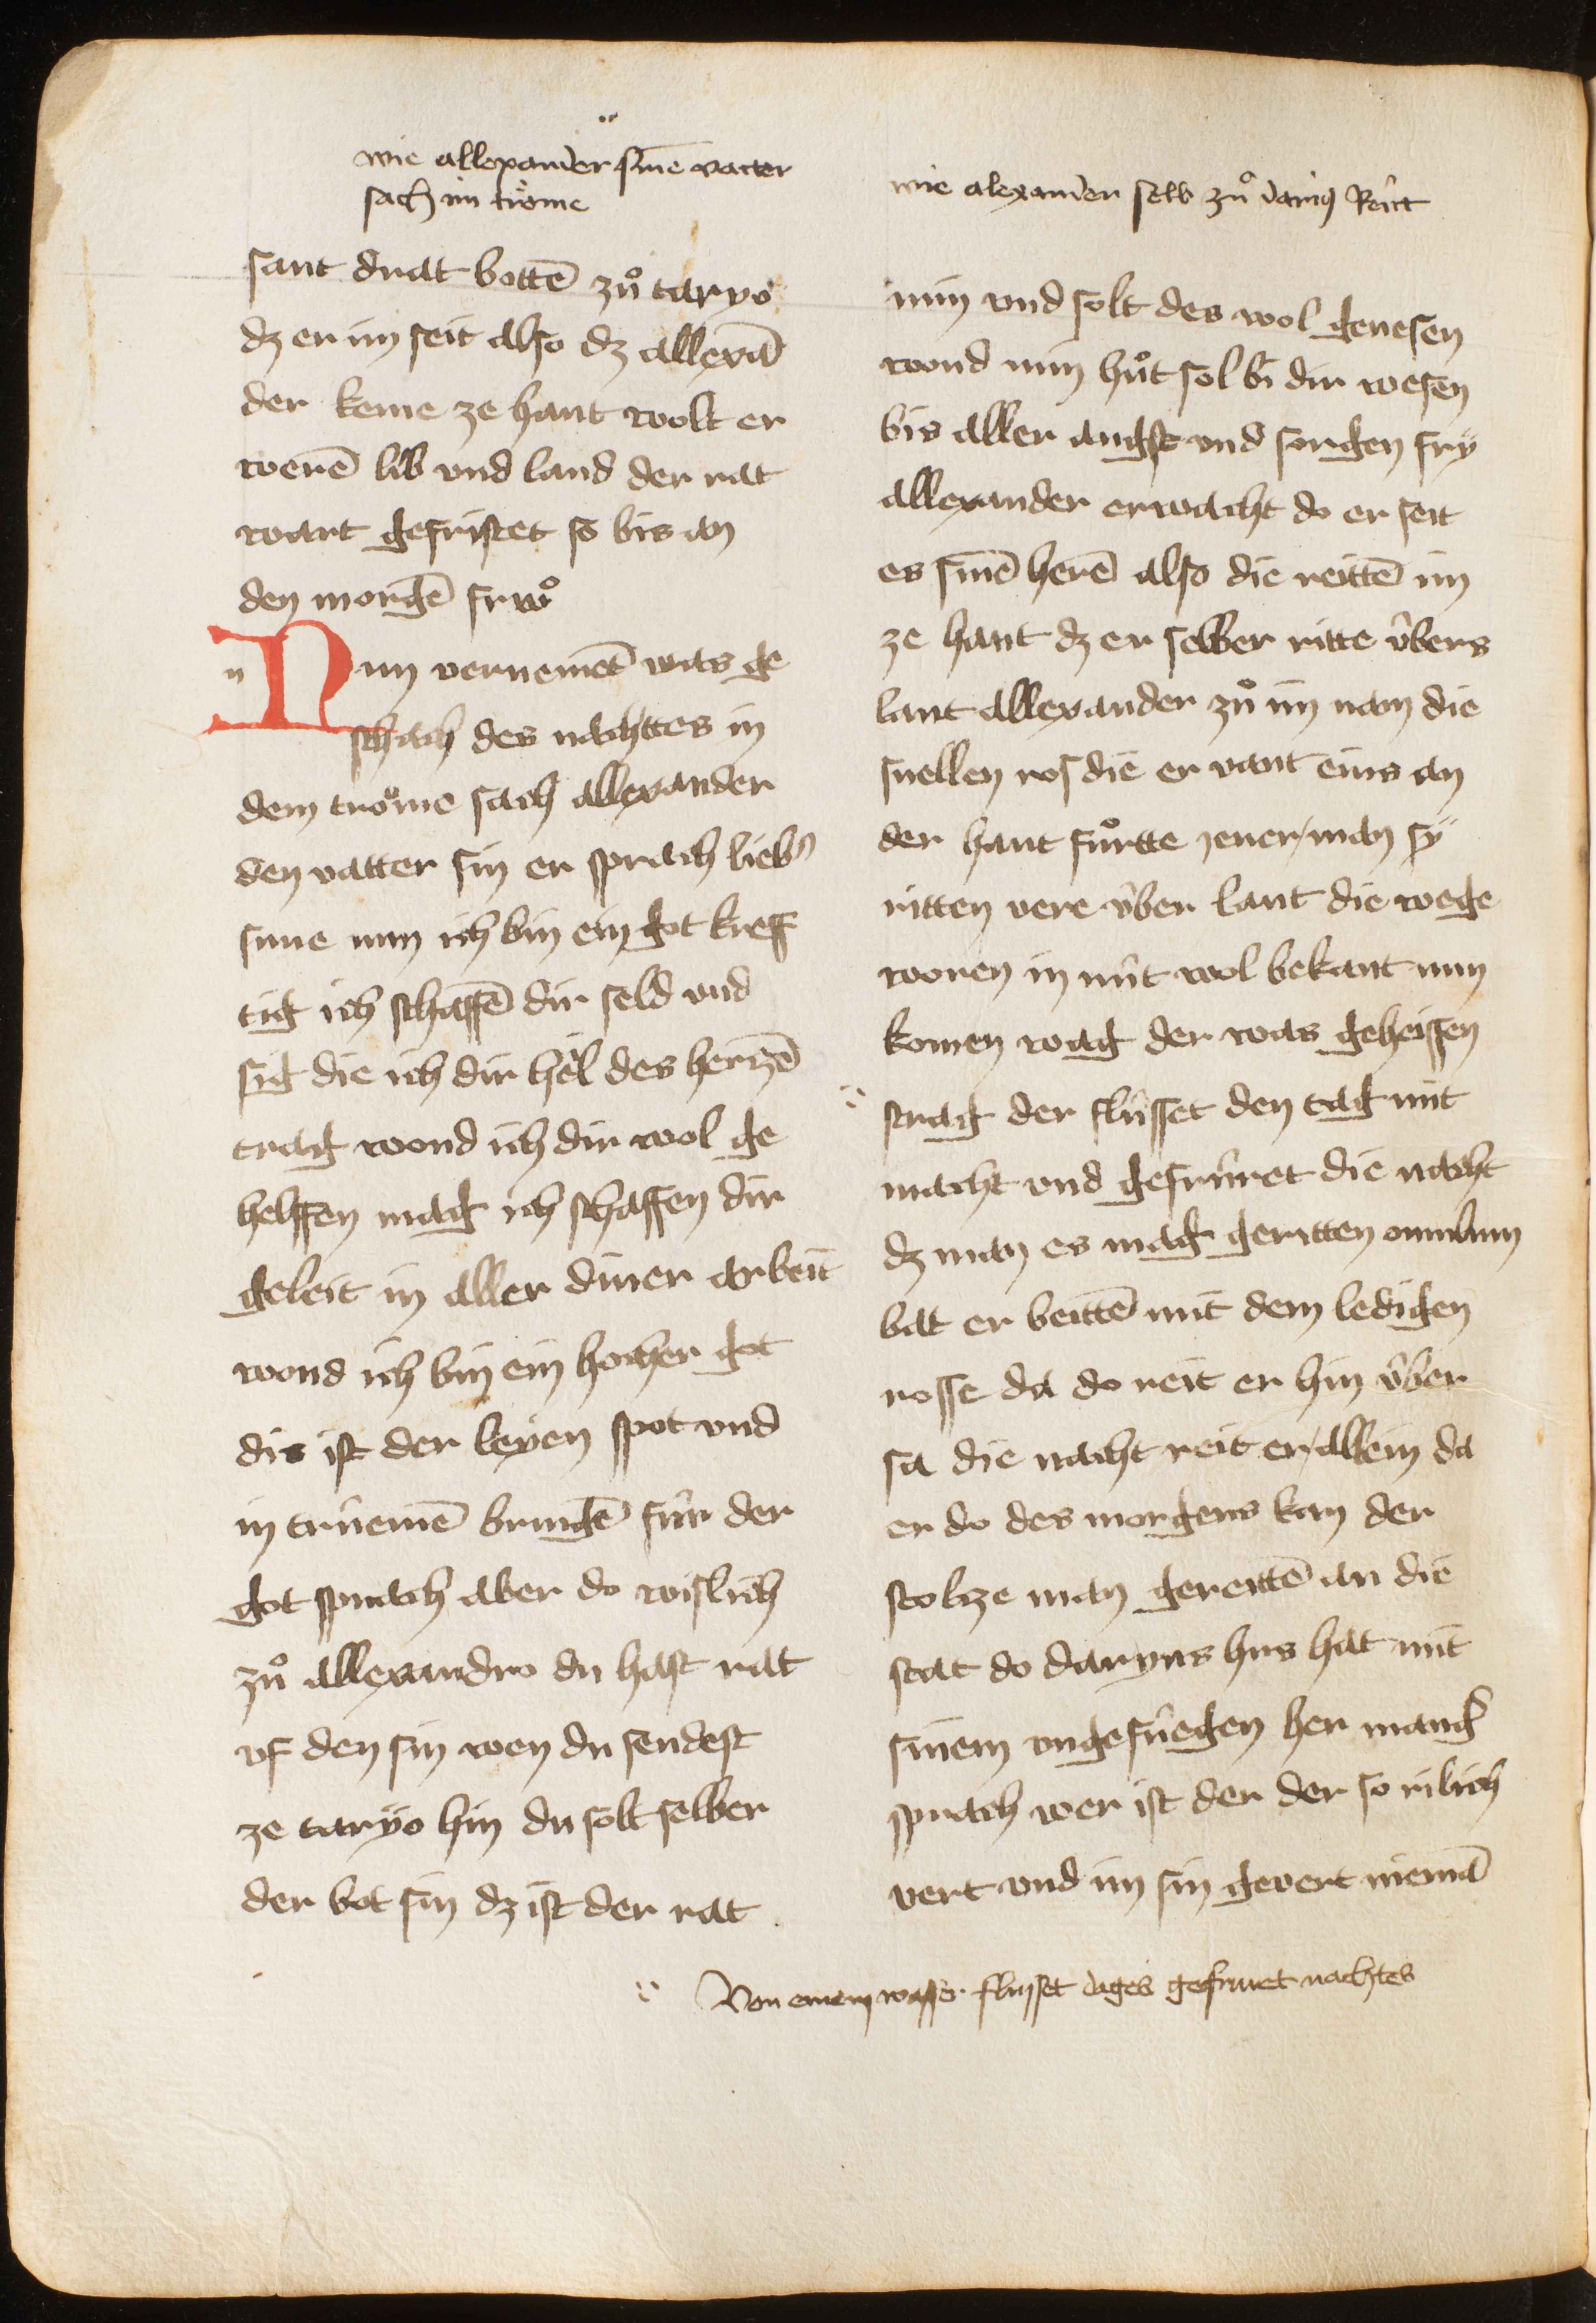 wie allexander sinē vatter
sach im trome
sant drat bottē zuͦ taryo
dz er im seit also dz allexā
der keme ze hant wolt er
werē lib vnd land der rat
wart gefristet so bis an
den morgē frwͦ
Nun vernemēt was ge
schach des nachttes in
dem trome sach allexander
den vatter sin er sprach lieb̛
sune nim ich bin ein got kref
tig ich schaffē dir seld vnd
sig die ich dir hel des hertzē
trag wond ich dir wol ge
helffen mag ich schaffen dir
geleit in aller diner arbeit
wond ich bin ein hocher got
dis ist der leyen spot vnd
in truͤemē bringē fuͤr der
got sprach aber do wislich
zuͦ allexandro du hast rat
vf den sin wen du sendest
ze taryo hin du solt selber
der bot sin dz ist der rat
wie alexander selb zuͦ dariꝯ Reitt
min vnd solt des wol genesen
wond min huͦt sol bi dir wesen
bis aller angst vnd sorgen fry
allexander erwacht do er seit
es sinē herē also die reittē im
ze hant dz er selber ritte uͤbers
lant allexander zuͦ im nam die
snellen ros die er vant eins an
der hant fuͦrtte jener man sy
ritten vere uͤber lant die wege
woren in nuͤt wol bekant nun
komen wag der was geheissen
strag der fluͤsset den tag mit
macht vnd gefruͤret die nacht
dz man es mag geritten oumlum
bat er beittē mit dem ledigen
rosse da do reit er hin uͤber
sa die nacht reit er allein da
er do des morgens kam der
stoltze man gereittē an die
stat do daryus hus hat mit
sinem vngefuͤegen her mang̛
sprach wer ist der der so rilich
vert vnd im sin gevert niemā
Von einem wasser flusset dages gefruret nachtes